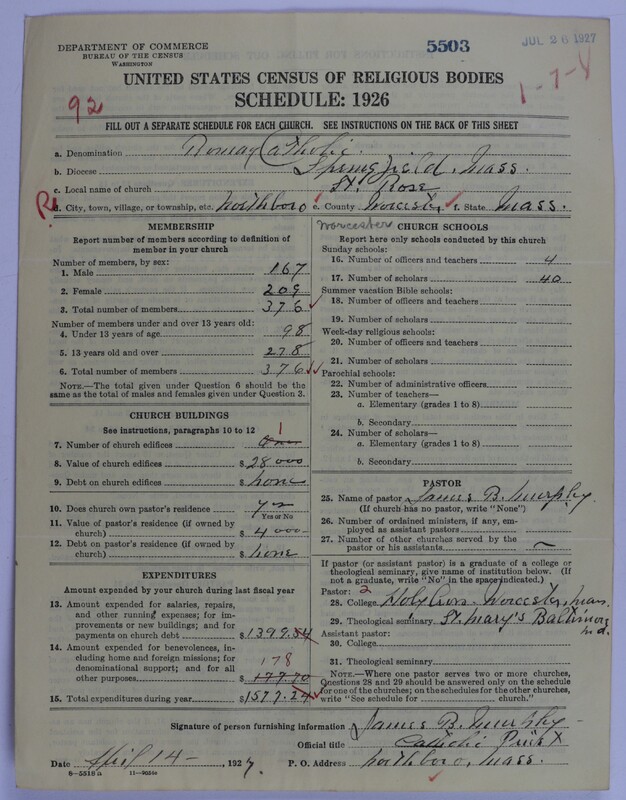 DEPARTMENT OF COMMERCE
BUREAU OF THE CENSUS
WASHINGTON
5503
JUL 26 1927
UNITED STATES CENSUS OF RELIGIOUS BODIES
SCHEDULE: 1926
92
1-7-
FILL OUT A SEPARATE SCHEDULE FOR EACH CHURCH. SEE INSTRUCTIONS ON THE BACK OF THIS SHEET
a. Denomination Roman Catholic
b. Diocese Springfield, Mass.
c. Local name of church St. Rose
d. City, town, village, or township, etc. Northboro e. County Worcester f. State Mass.
MEMBERSHIP
Report number of members according to definition of
member in your church
Number of members, by sex:
1. Male 167
2. Female 209
3. Total number of members 376
Number of members under and over 13 years old:
4. Under 13 years of age 98
5. 13 years old and over 278
6. Total number of members 376
NOTE.—The total given under Question 6 should be the
same as the total of males and females given under Question 3.
CHURCH BUILDINGS
See instructions, paragraphs 10 to 12
1
7. Number of church edifices One
8. Value of church edifices $ 28000
9. Debt on church edifices $ none
10. Does church own pastor's residence yes
Yes or No
11. Value of pastor's residence (if owned by
church) $ 4000
12. Debt on pastor's residence (if owned by
church) $ none
EXPENDITURES
Amount expended by your church during last fiscal year
13. Amount expended for salaries, repairs,
and other running expenses; for im-
provements or new buildings; and for
payments on church debt $ 1399.54
14. Amount expended for benevolences, in-
cluding home and foreign missions; for
denominational support; and for all
other purposes 178
$ 177.70
15. Total expenditures during year $ 1577.24
Worcester
CHURCH SCHOOLS
Report here only schools conducted by this church
Sunday schools:
16. Number of officers and teachers 4
17. Number of scholars 40
Summer vacation Bible schools:
18. Number of officers and teachers
19. Number of scholars
Week-day religious schools:
20. Number of officers and teachers
21. Number of scholars
Parochial schools:
22. Number of administrative officers
23. Number of teachers—
a. Elementary (grades 1 to 8)
b. Secondary
24. Number of scholars—
a. Elementary (grades 1 to 8)
b. Secondary
PASTOR
25. Name of pastor James B. Murphy
(If church has no pastor, write "None")
26. Number of ordained ministers, if any, em-
ployed as assistant pastors
27. Number of other churches served by the
pastor or his assistants
If pastor (or assistant pastor) is a graduate of a college or
theological seminary, give name of institution below. (If
not a graduate, write "No" in the space indicated.)
Pastor: 2
28. College Holy Cross Worcester, Mass.
29. Theological seminary St. Mary's Baltimore
Md.
Assistant pastor:
30. College
31. Theological seminary
NOTE.—Where one pastor serves two or more churches,
Questions 28 and 29 should be answered only on the schedule
for one of the churches; on the schedules for the other churches,
write "See schedule for church."
Signature of person furnishing information James B. Murphy
Official title Catholic Priest
Date April 14 -, 1927. P. O. Address Northboro, Mass.
8—5518 a 11—9024a